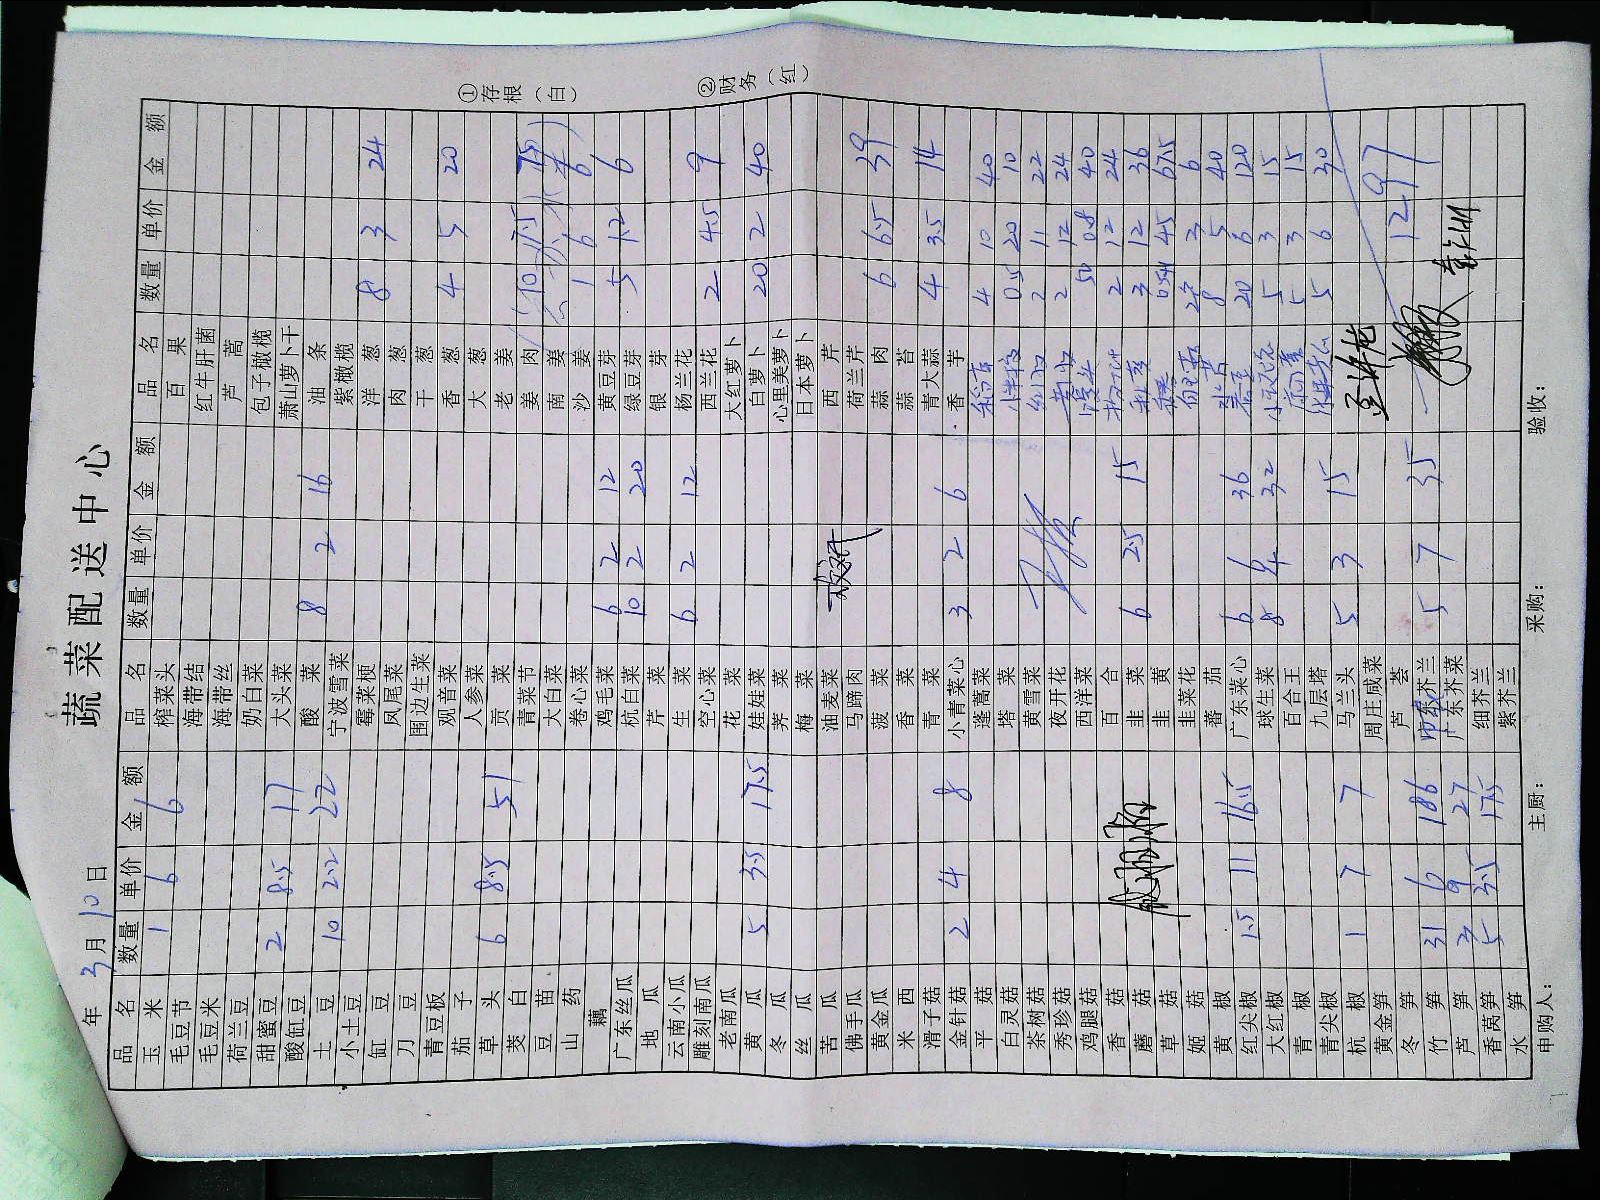 蔬菜配送中心
年 3月10日
品名 数量 单价 金额 品名 数量 单价 金额 品名 数量 单价 金额
玉米 1 6 6 榨菜头 百果
毛豆节 海带结 红牛肝菌
毛豆米 海带丝 芦蒿
荷兰豆 奶白菜 包子橄榄
甜蜜豆 2 8.5 17 大头菜 萧山萝卜干
酸缸豆 酸菜 8 2 16 油条
土豆 10 2.2 22 宁波雪菜 紫橄榄
小土豆 霉菜梗 洋葱 8 3 24
缸豆 凤尾菜 肉葱
刀豆 围边生菜 干葱
青豆板 观音菜 香葱 4 5 20
茄子 人参菜 大葱
草头 6 8.5 51 贡菜 老姜
茭白 青菜节 姜肉 10 7.5 75
豆苗 大白菜 南姜
山药 卷心菜 沙姜 1 6 6
藕 鸡毛菜 6 2 12 黄豆芽
广东丝瓜 杭白菜 10 2 20 绿豆芽 5 1.2 6
地瓜 芹菜 银芽
云南小瓜 生菜 6 2 12 杨兰花
雕刻南瓜 空心菜 西兰花 2 4.5 9
老南瓜 花菜 大红萝卜
黄瓜 5 3.5 17.5 娃娃菜 白萝卜 20 2 40
冬瓜 荠菜 心里美萝卜
丝瓜 梅菜 日本萝卜
苦瓜 油麦菜 西芹
佛手瓜 马蹄肉 荷兰芹
黄金瓜 菠菜 蒜肉 6 6.5 39
米西 香菜 蒜苔
滑子菇 青菜 青大蒜 4 3.5 14
金针菇 2 4 8 小青菜心 3 2 6 香芋
平菇 蓬蒿菜 4 10 40
白灵菇 塔菜 0.5 20 10
茶树菇 黄雪菜 2 11 22
秀珍菇 夜开花 2 12 24
鸡腿菇 西洋菜 50 0.8 40
香菇 百合 2 12 24
蘑菇 韭菜 6 2.5 15 3 12 36
草菇 韭黄 67.5
姬菇 韭菜花 2 3 6
黄椒 蕃茄 8 5 40
红尖椒 1.5 11 16.5 广东菜心 6 6 36 20 6 120
大红椒 球生菜 8 4 32 5 3 15
青椒 百合王 5 3 15
青尖椒 九层塔 5 6 30
杭椒 1 7 7 马兰头 5 3 15
黄金笋 周庄咸菜
冬笋 芦荟 1297
竹笋 31 6 186 芥兰 5 7 35
芦笋 3 9 27 广东芥菜
香莴笋 5 3.5 17.5 细芥兰
水笋 紫芥兰
申购人： 主厨： 采购： 验收：
①存根（白）
②财务（红）